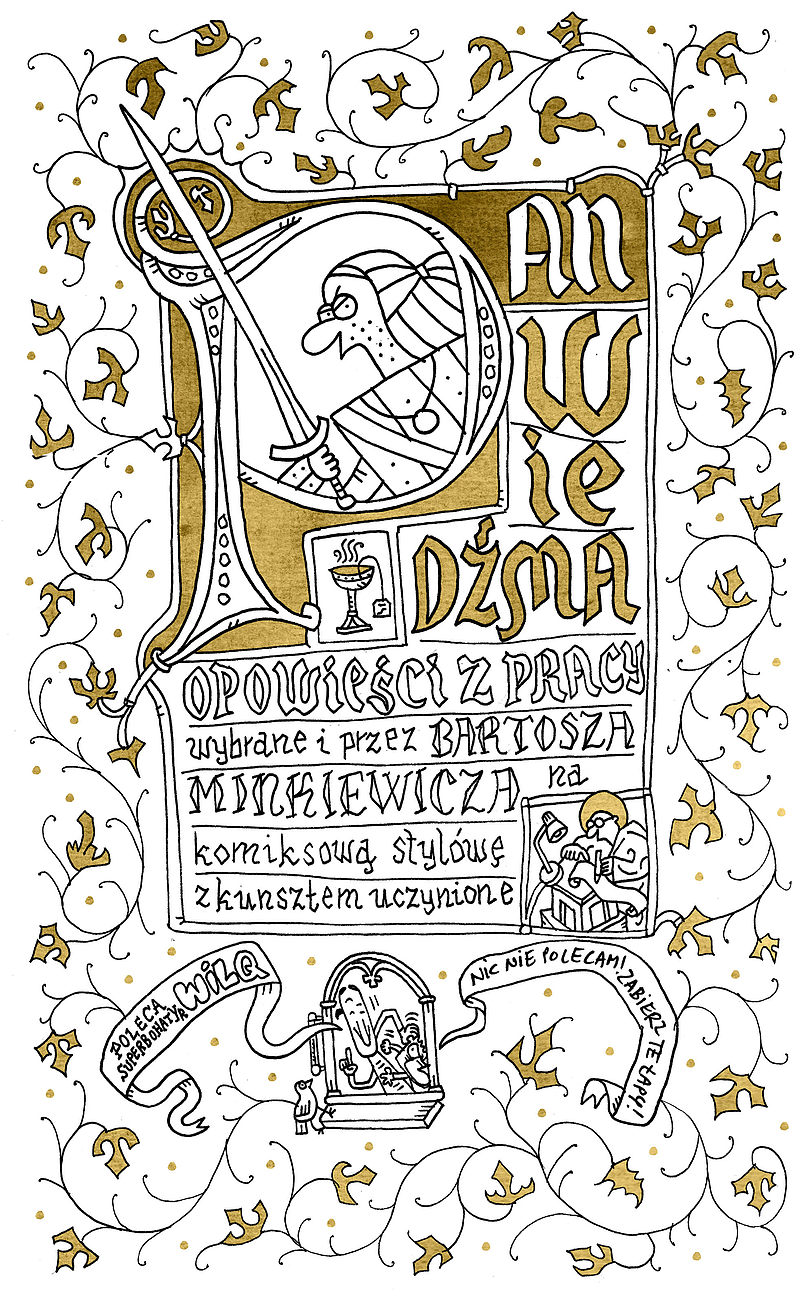 PAN
Wie
DŹMA
OPOWieŚCi Z PRACY
wybrane i przez BARTOSZA
MINKIEWICZA na
komiksową stylówę
z kunsztem uczynione
POLECA
SUPERBOHATYR WILQ
NIC NIE POLECAM! ZABIERZ TE ŁAPY!